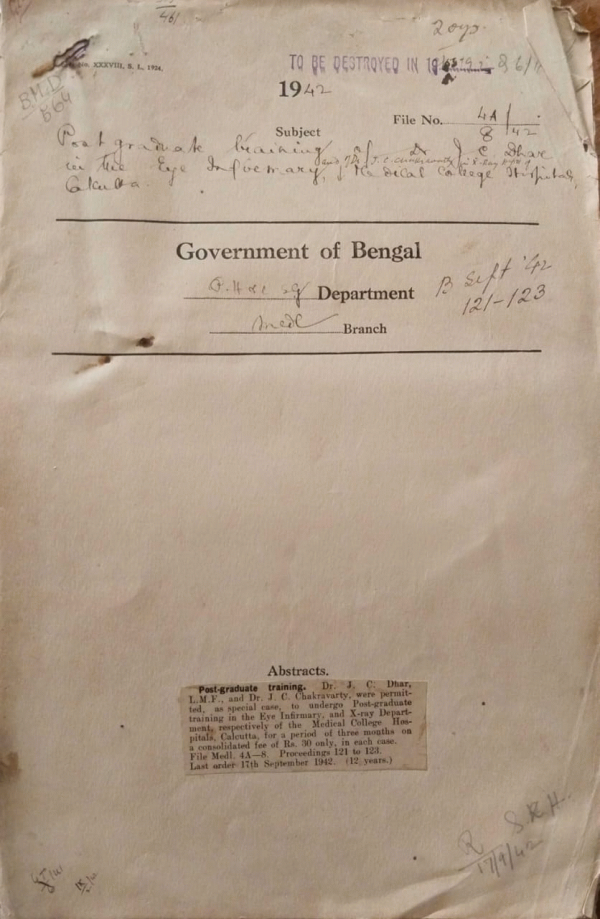 461
XXXVIII, S. L., 1924.
TO BE DESTROYED IN 19
1942
File No. 4A/8/42
Subject
Post graduate training of Dr J C Dhar
in the Eye Infirmary, Medical College Hospitals,
Calcutta.
Government of Bengal
Department
B Sept '42
121-123
Medl Branch
Abstracts.
Post-graduate training. Dr. J. C. Dhar,
L.M.F., and Dr. J. C. Chakravarty, were permit-
ted, as special case, to undergo Post-graduate
training in the Eye Infirmary, and X-ray Depart-
ment, respectively of the Medical College Hos-
pitals, Calcutta, for a period of three months on
a consolidated fee of Rs. 30 only, in each case.
File Medl. 4A—8. Proceedings 121 to 123.
Last order 17th September 1942. (12 years.)
17/9/42